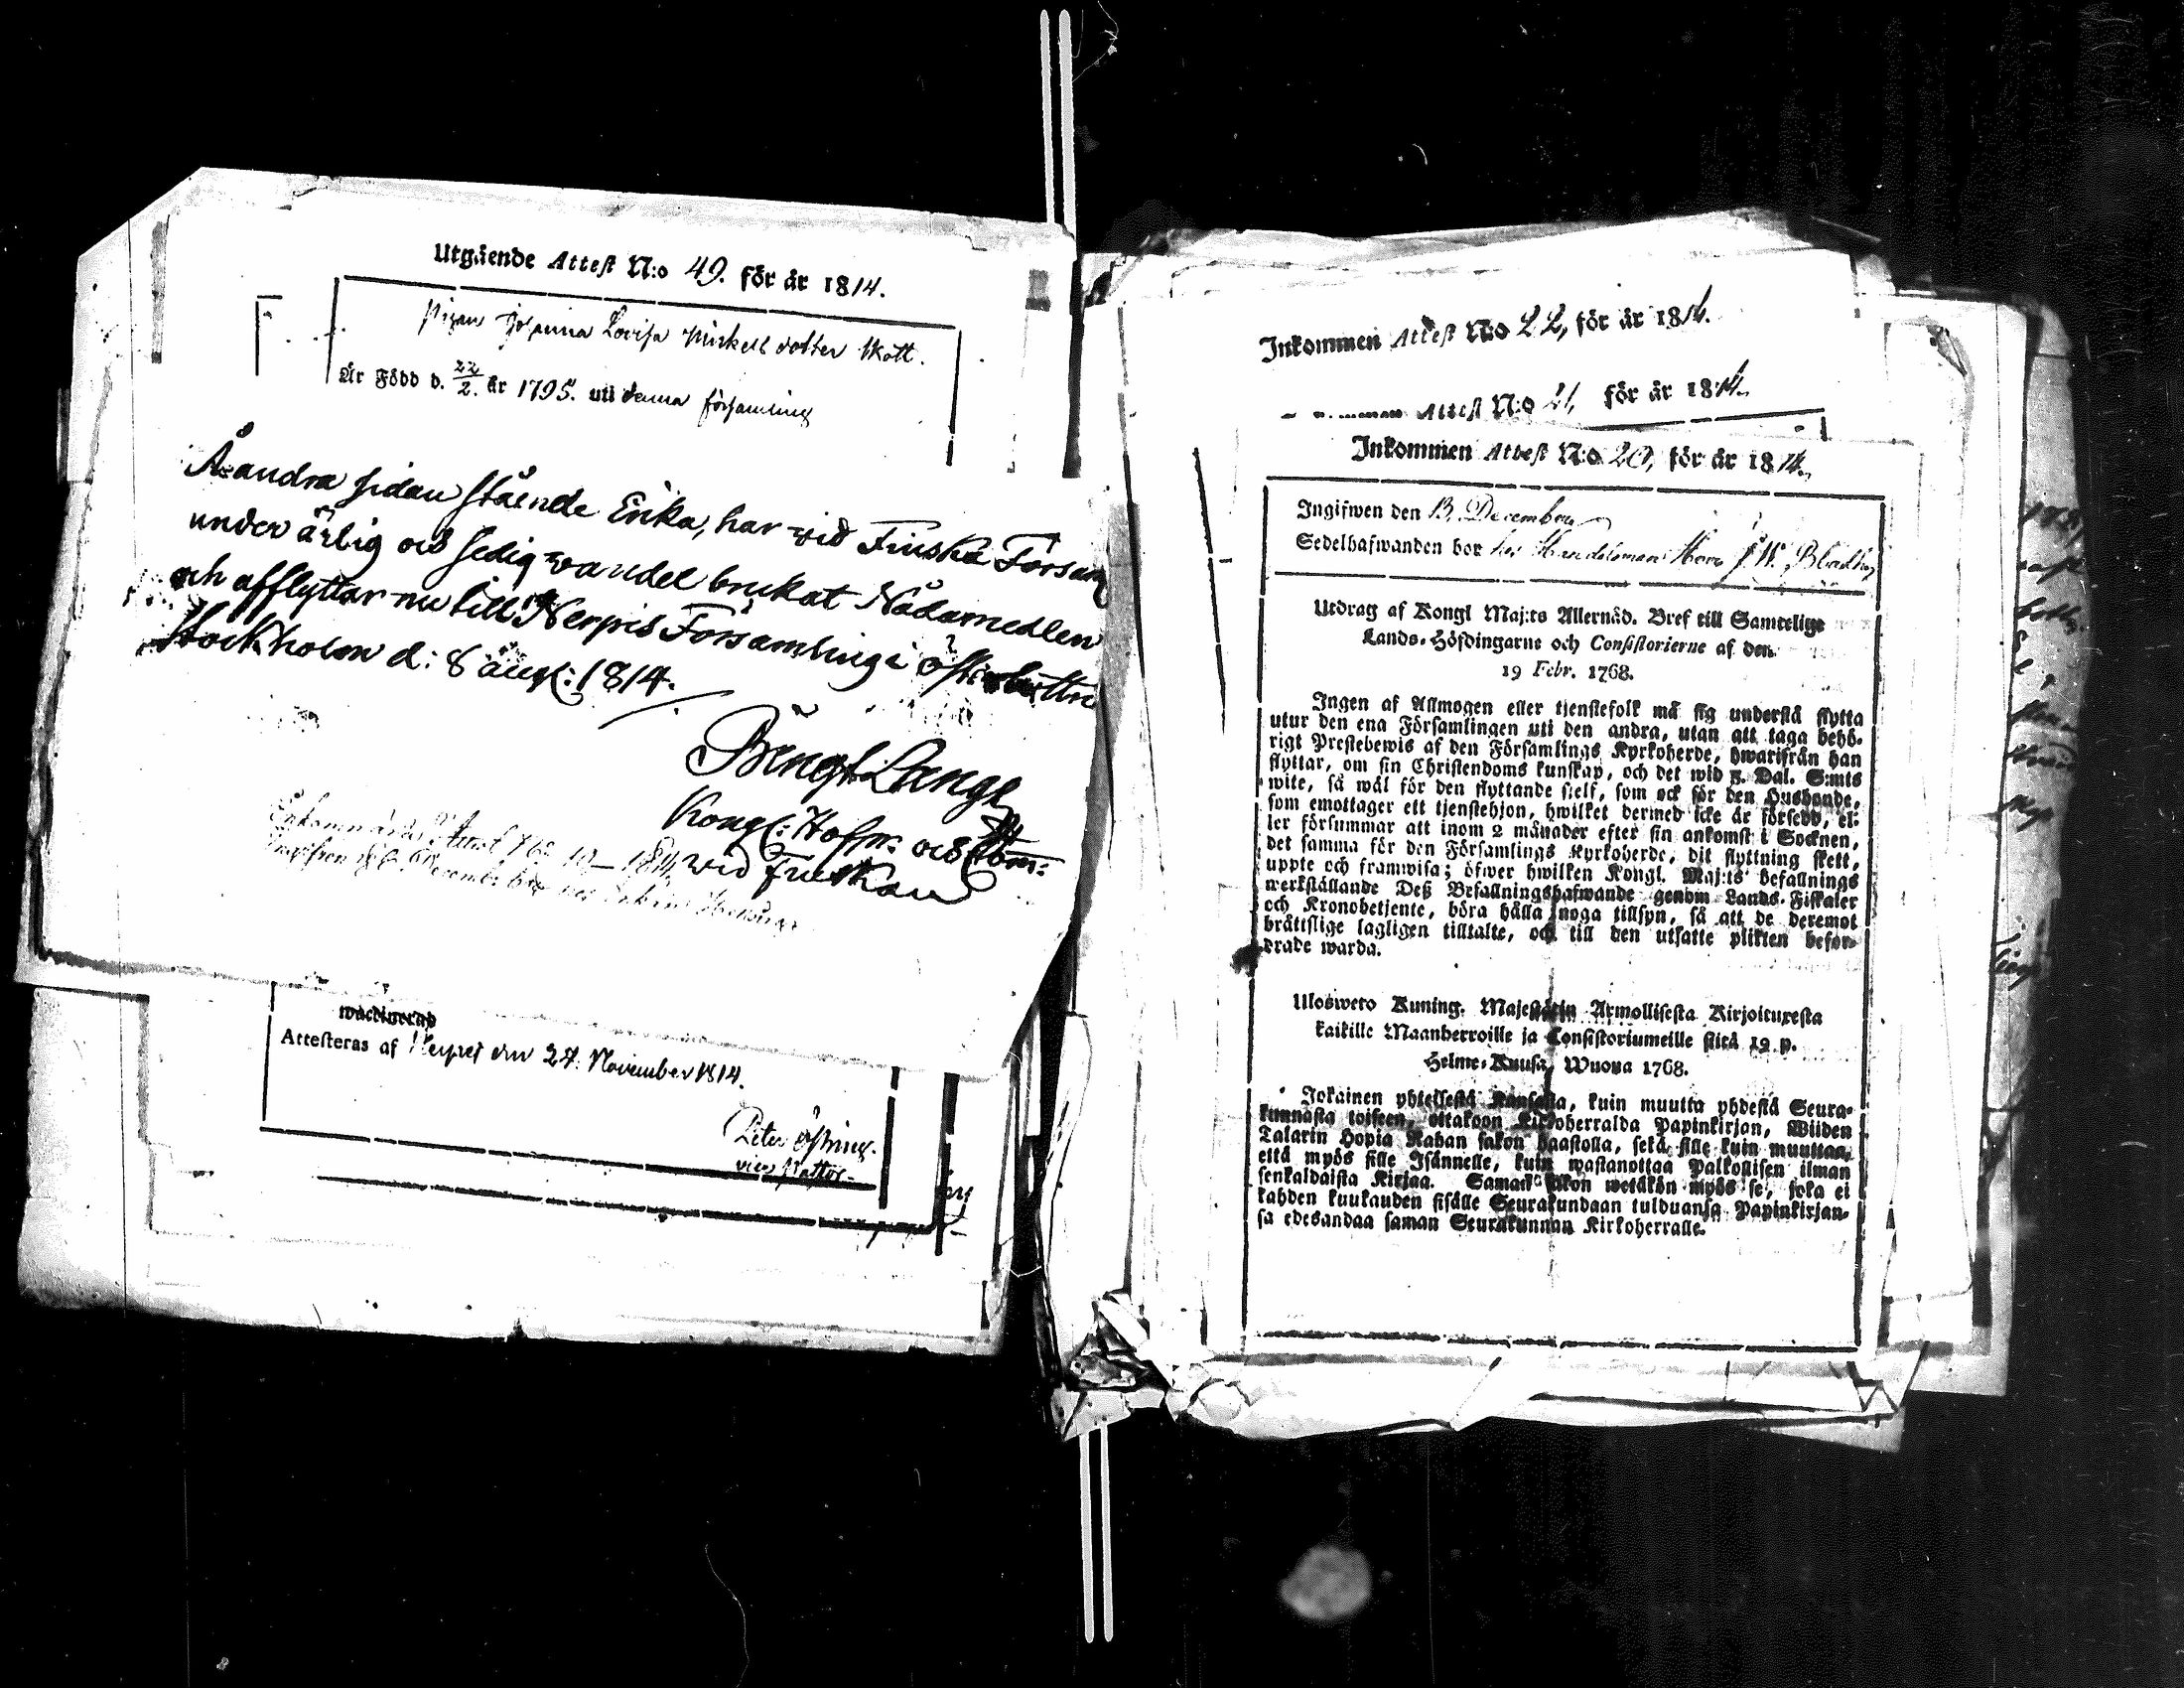 Utgående Attest N:o 49. för år 1814.
Pigan Johanna Lovisa Mickelsdotter Skatt.
Är Född d. 22/2. år 1795. uti denna församling
Å andra sidan stående Erika, har wid Finska Församl
under ärlig och sedig wandel brukat Nådamedlen
och afflyttar nu till Nerpis Församling i Österbottn
Stockholm d: 8 aug: 1814.
Bengt Lange
Kongl: Hofpr. och Com:
wid Finskan
Inkommande Attest No 19 1814
Ingifwen d. December
Attesteras af Nerpes den 27. November 1814.
Peter
vice Pastor
Inkommen Attest N:o 22, för år 1814.
Attest N:o 21, för år 1814.
Inkommen Attest N:o 20, för år 1814.
Ingifwen den 13. December
Sedelhafwanden bor hos Handelsman Herr J. W. Bladh
Utdrag af Kongl Maj:ts Allernåd. Bref till Samtelige
Lands-Höfdingarne och Consistorierne af den
19 Febr. 1768.
Ingen af Allmogen eller tjenstefolk må sig understå flytta
utur den ena Församlingen uti den andra, utan att taga behö-
rigt Prestebewis af den Församlings Kyrkoherde, hwarifrån han
flyttar, om sin Christendoms kunskap, och det wid 5. Dal. S:mts
wite, så wäl för den flyttande sielf, som ock för den Husbonde,
som emottager ett tjenstehjon, hwilket dermed icke är försedd, el:
ler försummar att inom 2 månader efter sin ankomst i Socknen,
det samma för den Församlings Kyrkoherde, dit flyttning skett,
uppte och framwisa; öfwer hwilken Kongl. Maj:ts befallnings
werkställande Deß Befallningshafwande genom Lands-Fiskaler
och Kronobetjente, böra hålla noga tillsyn, så att de deremot
bråttslige lagligen tilltalte, och till den utsatte plikten befor-
drade warda.
Ulosweto Kuning. Majestätin Armollisesta Kirjoituxesta
kaikille Maanherroille ja Consistoriumeille siitä 19 p.
Helme-Kuusa, Wuona 1768.
Jokainen yhteisestä Kansasta, kuin muutta yhdestä Seura-
kunnasta toiseen, ottakoon Kirkoherralda Papinkirjan, Wiiden
Talarin Hopia Rahan sakon haastolla, sekä sille kuin muuttaa,
että myös sille Isännelle, kuin wastanottaa Palkollisen ilman
senkaldaista Kirjaa. Saman sakon wetäkön myös se, joka ei
kahden kuukauden sisälle Seurakundaan tulduansa Papinkirjan-
sa edesandaa saman Seurakunnan Kirkoherralle.